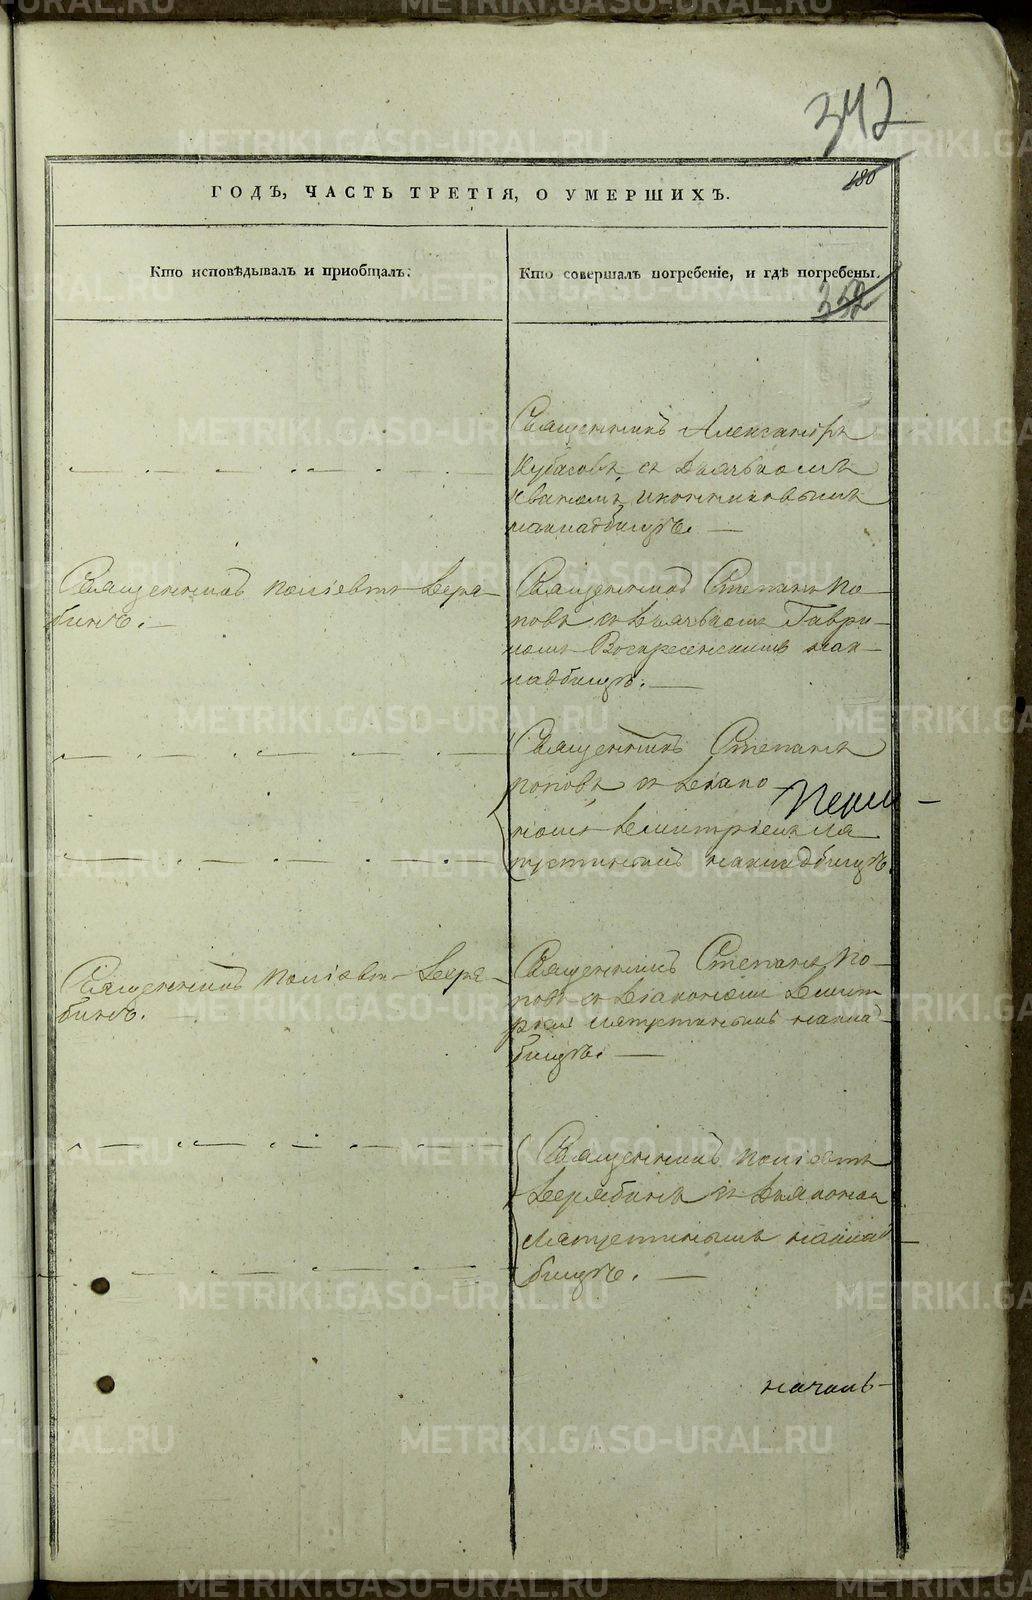 342
180
ГОДЪ, ЧАСТЬ ТРЕТІЯ, О УМЕРШИХЪ.
Кто исповѣдывалъ и приобщалъ.
Кто совершалъ погребеніе, и гдѣ погребены.
352
Священникъ Александръ
Кубасовъ съ дьячькомъ
Иваномъ Иконниковымъ
на кладбищѣ. —
Священникъ Поліевтъ Деря-
бинъ. —
Священникъ Степанъ По-
повъ съ дьячькомъ Гаври-
ломъ Воскресенскимъ на к-
ладбищѣ. —
Священникъ Степанъ
Поповъ съ діако
Перм-
номъ Димитріемъ Ля
пустинымъ на кладбищѣ.
Священникъ Поліевтъ Деря-
бинъ.
Священникъ Степанъ По-
повъ съ діакономъ Димит
ріемъ на клад-
бищѣ. —
Священникъ Поліевтъ
Дерябинъ съ дьякономъ
на клад-
бищѣ. —
началь-
METRIKI.GASO-URAL.RU